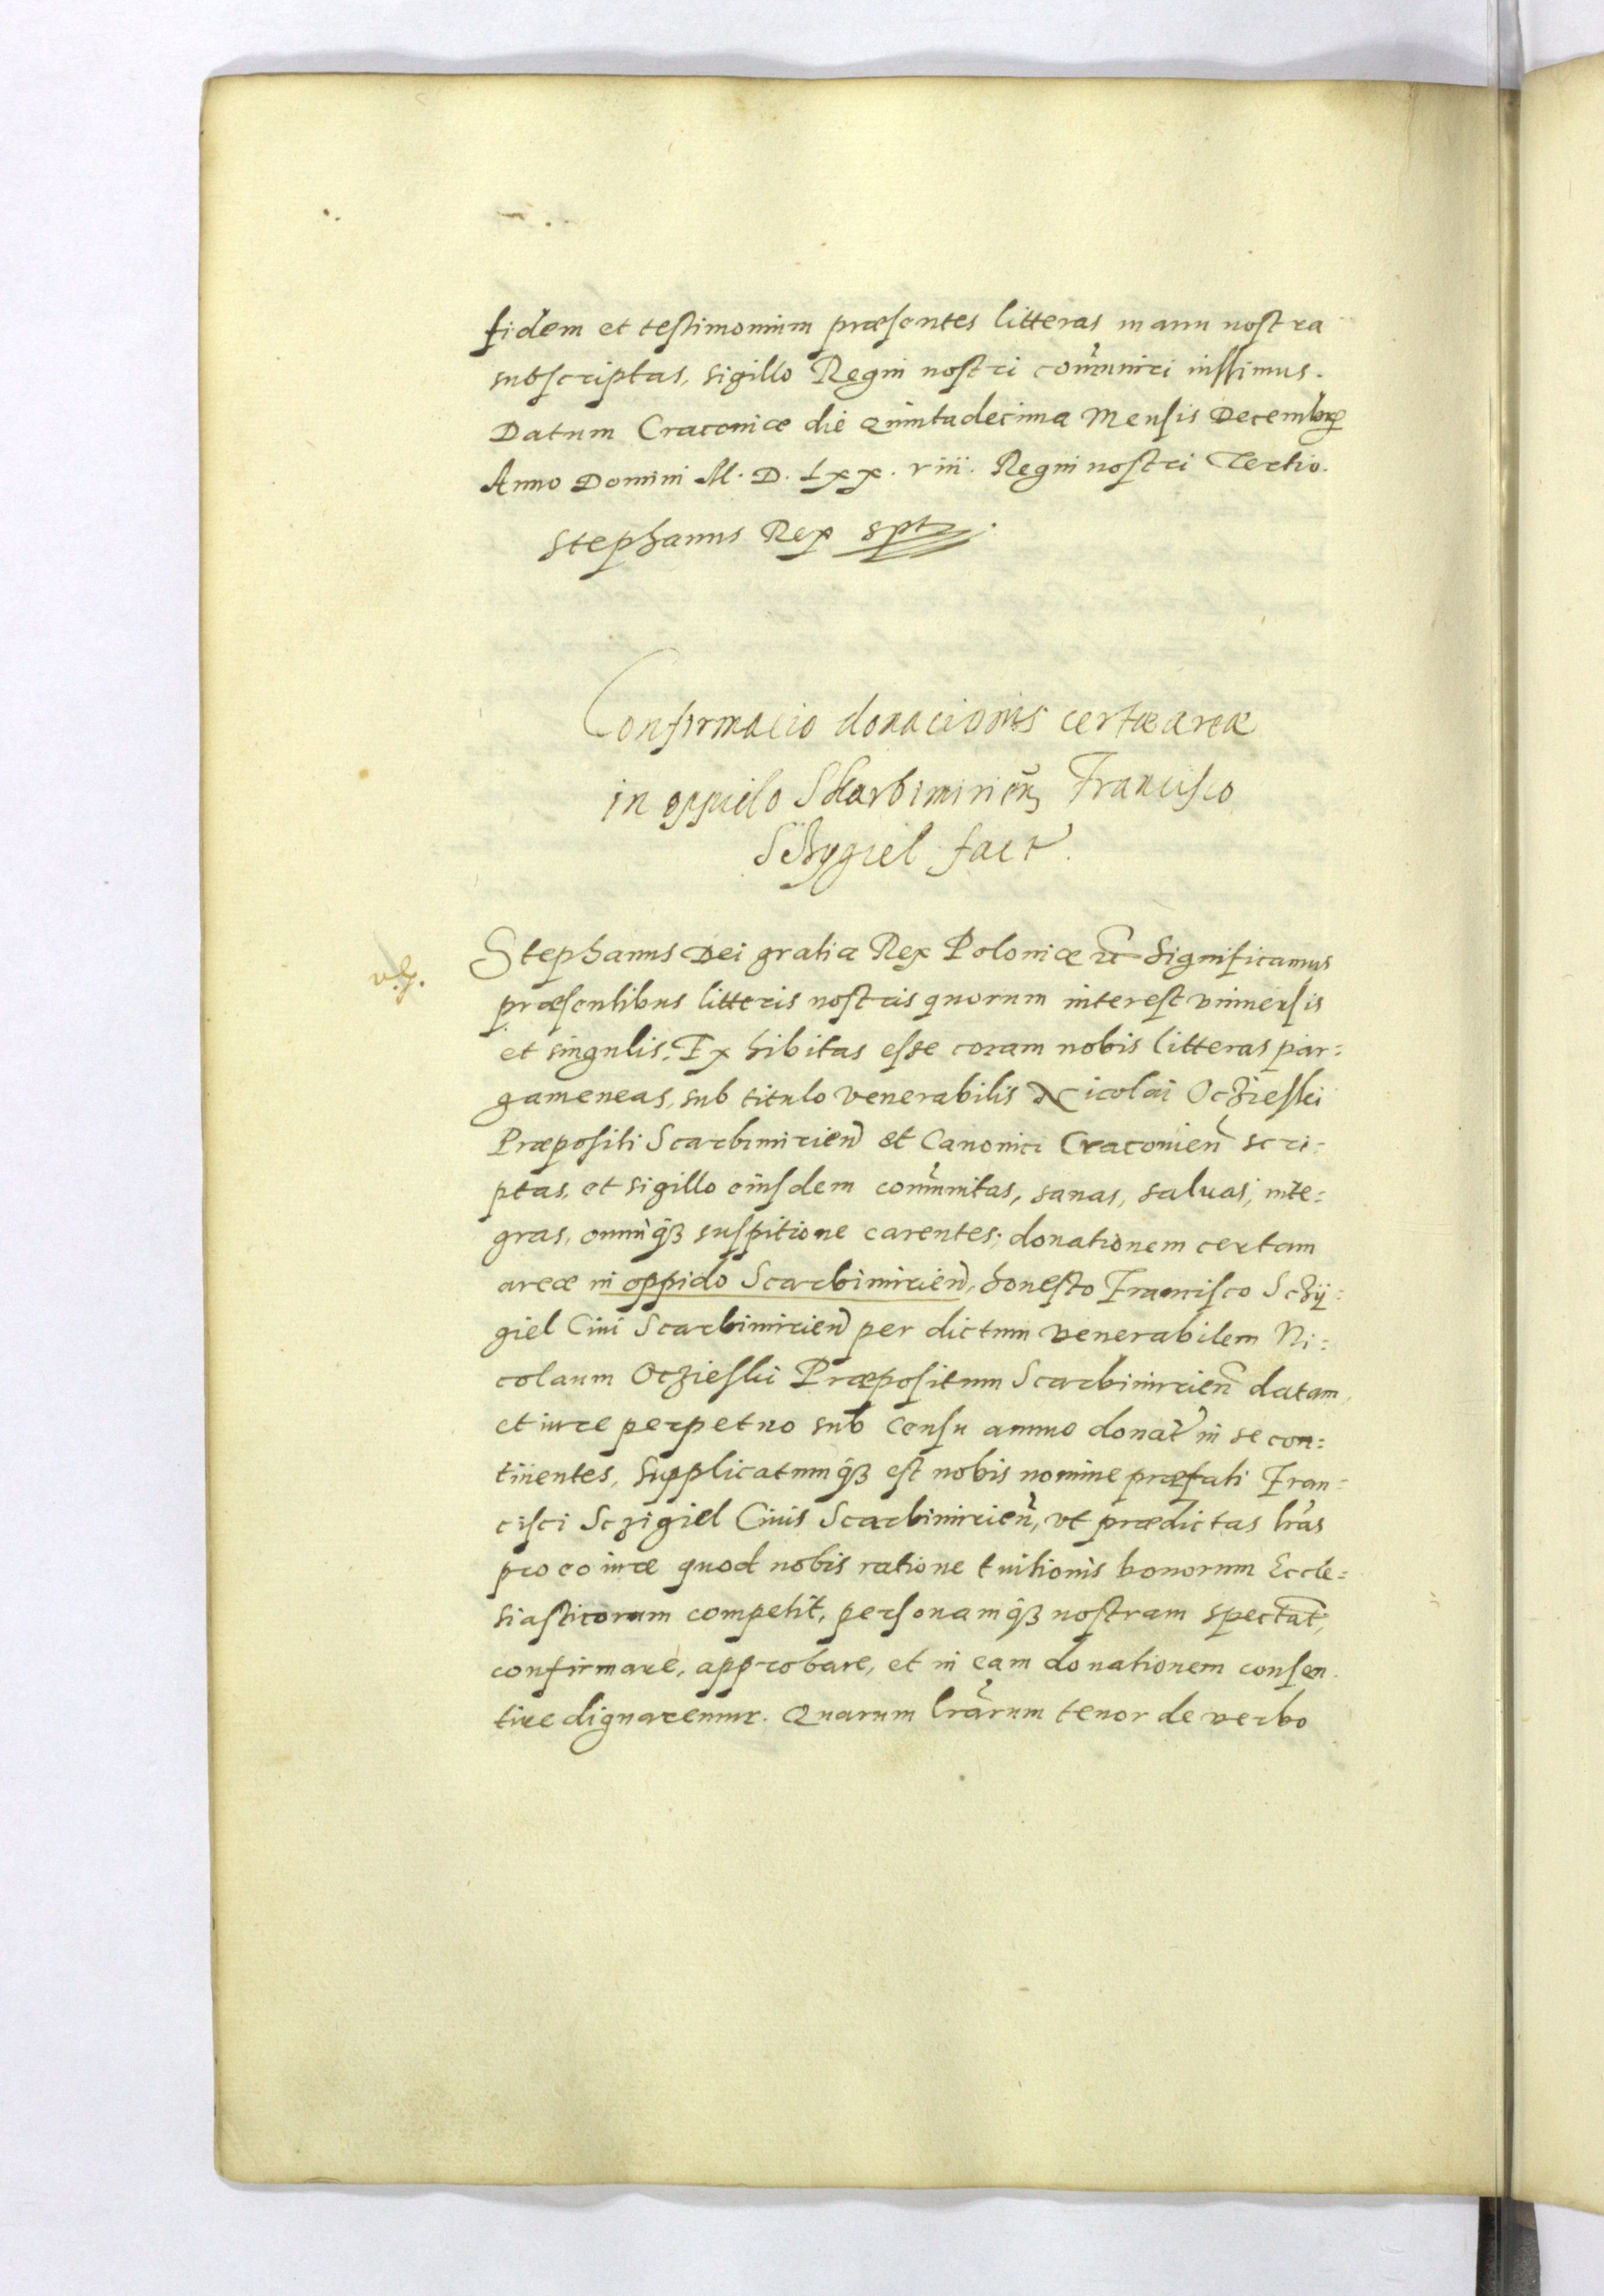 fidem et testimonium præsentes litteras manu nostra
subscriptas, sigillo Regni nostri com̃uniri iussimus.
Datum Cracouiæ die Quintadecima Mensis Decembr̃
Anno Domini M. D. Lxx. viii. Regni nostri Tertio.
Stephanus Rex spt
Confirmacio donacionis certæ areæ
in oppido Skarbimirieñ Francisco
Sczygiel fact
Stephanus Dei gratia Rex Poloniæ etc̃ Significamus
præsentibus litteris nostris quorum interest vniuersis
et singulis. Exhibitas esse coram nobis litteras par=
gameneas, sub titulo venerabilis Nicolai Oczieski
Præpositi Scarbimirieñ et Canonici Cracouieñ scri=
ptas, et sigillo eiusdem com̃unitas, sanas, saluas, inte=
gras, omniq꜕ suspitione carentes; donationem certam
areæ in oppido Scarbimirieñ, honesto Francisco Sczÿ=
giel Ciui Scarbimirieñ per dictum venerabilem Ni=
colaum Oczieski Præpositum Scarbimirieñ datam,
et iure perpetuo sub censu annuo donat̃ in se con=
tinentes, Supplicatumq꜕ est nobis nomine præfati Fran=
cisci Sczigiel Ciuis Scarbimirieñ, vt prædictas lr̃as
pro eo iure quod nobis ratione tuitionis bonorum Eccle=
siasticorum competit, personamq꜕ nostram spectat,
confirmare, approbare, et in eam donationem consen
tire dignaremur. Quarum lr̃arum tenor de verbo